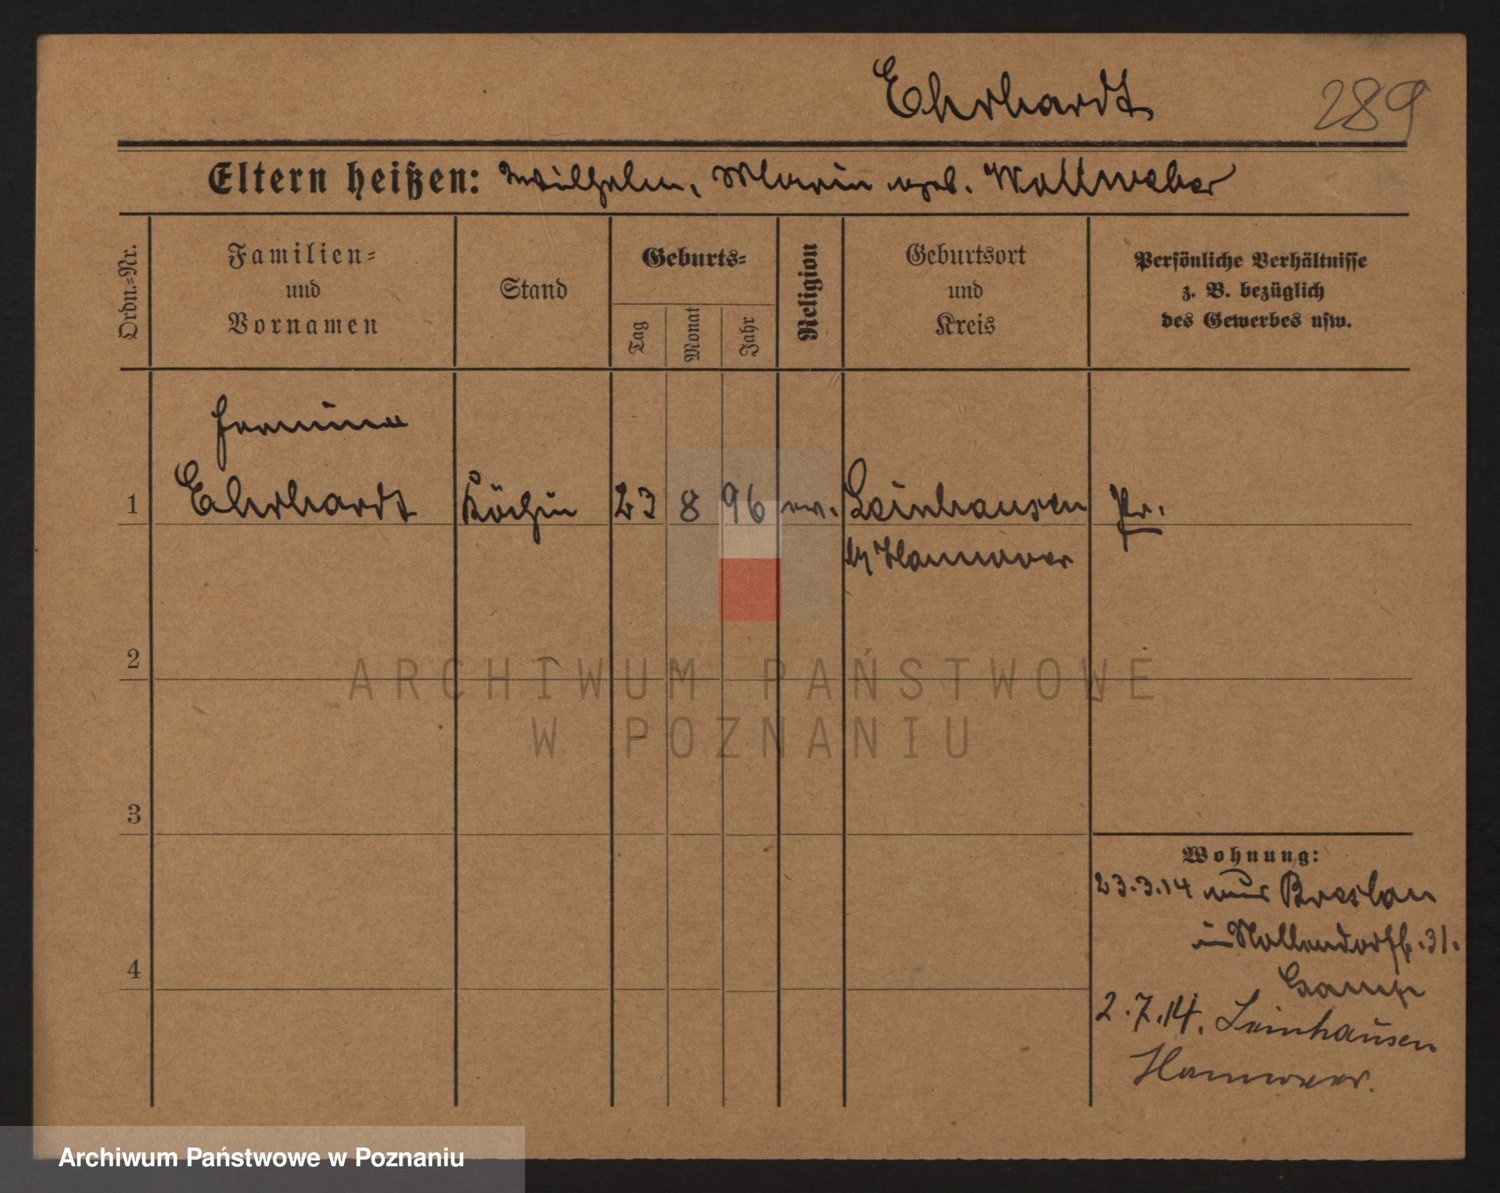 Ehrhardt 289
Eltern heißen: Wilhelm, Marie geb. Wollweber
Ordn.-Nr.
Familien-
und
Vornamen
Stand
Geburts-
Tag
Monat
Jahr
Religion
Geburtsort
und
Kreis
Persönliche Verhältnisse
z. B. bezüglich
des Gewerbes usw.
1 Ehrhardt Köchin 23 8 96 ev. Leinhausen Pr.
Hannover
2
3
4
Wohnung:
23.3.14 aus Breslau
in Nollendorfstr. 31.
2.7.14. Leinhausen
Hannover.
ARCHIWUM PAŃSTWOWE
W POZNANIU
Archiwum Państwowe w Poznaniu